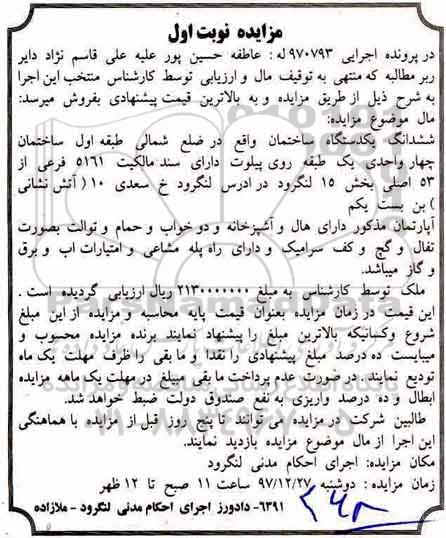 مزایده نوبت اول
در پرونده اجرایی ۹۷۰۷۹۳ له : عاطفه حسین پور علیه علی قاسم نژاد دایر
ربر مطالبه که منتهی به توقیف مال و ارزیابی توسط کارشناس منتخب این اجرا
به شرح ذیل از طریق مزایده و به بالاترین قیمت پیشنهادی بفروش میرسد:
مال موضوع مزایده:
ششدانگ یکدستگاه ساختمان واقع در ضلع شمالی طبقه اول ساختمان
چهار واحدی یک طبقه روی پیلوت دارای سند مالکیت ۵۱۶۱ فرعی از
۵۳ اصلی بخش ۱۵ لنگرود در ادرس لنگرود خ سعدی ۱۰ ( آتش نشانی
) بن بست یکم
آپارتمان مذکور دارای هال و آشپزخانه و دو خواب و حمام و توالت بصورت
تفال و گچ و کف سرامیک و دارای راه پله مشاعی و امتیازات اب و برق
و گاز میباشد.
ملک توسط کارشناس به مبلغ ۲۱۳۰۰۰۰۰۰۰ ریال ارزیابی گردیده است .
این قیمت در زمان مزایده بعنوان قیمت پایه محاسبه و مزایده از این مبلغ
شروع وکسانیکه بالاترین مبلغ را پیشنهاد نمایند برنده مزایده محسوب و
میبایست ده درصد مبلغ پیشنهادی را نقدا و ما بقی را ظرف مهلت یک ماه
تودیع نمایند. در صورت عدم پرداخت ما بقی مبلغ در مهلت یک ماهه مزایده
ابطال و ده درصد واریزی به نفع صندوق دولت ضبط خواهد شد.
طالبین شرکت در مزایده می توانند تا پنج روز قبل از مزایده با هماهنگی
این اجرا از مال موضوع مزایده بازدید نمایند.
مکان مزایده: اجرای احکام مدنی لنگرود
زمان مزایده : دوشنبه ۹۷/۱۲/۲۷ ساعت ۱۱ صبح تا ۱۲ ظهر
۶۳۹۱- دادورز اجرای احکام مدنی لنگرود - ملازاده
ParsNamadData
۰۲۱-۸۸۳۴۹۶۷۰-۵